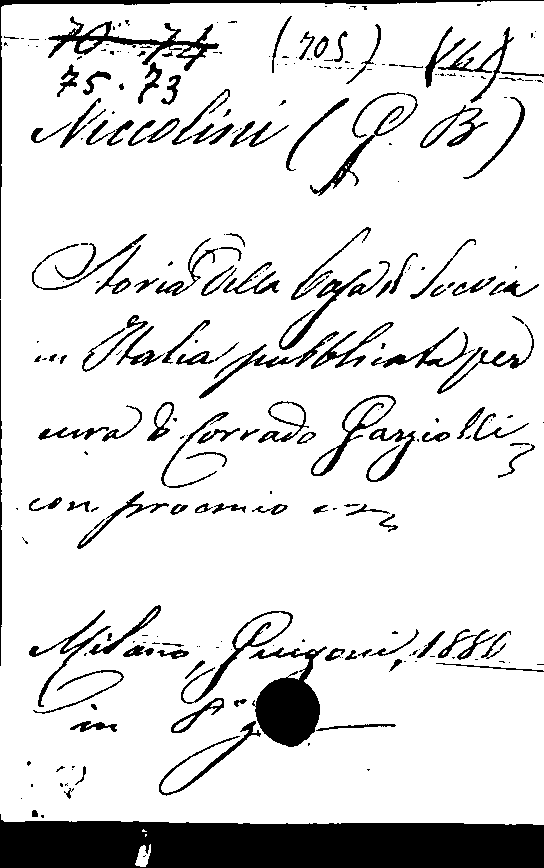 70.74 (705)
75.73
Niccolini (G. B)
Storia della Casa di Svevia
in Italia pubblicata per
cura di Corrado Gargiolli
con proemio
Milano, Guigoni, 1880
in 8°